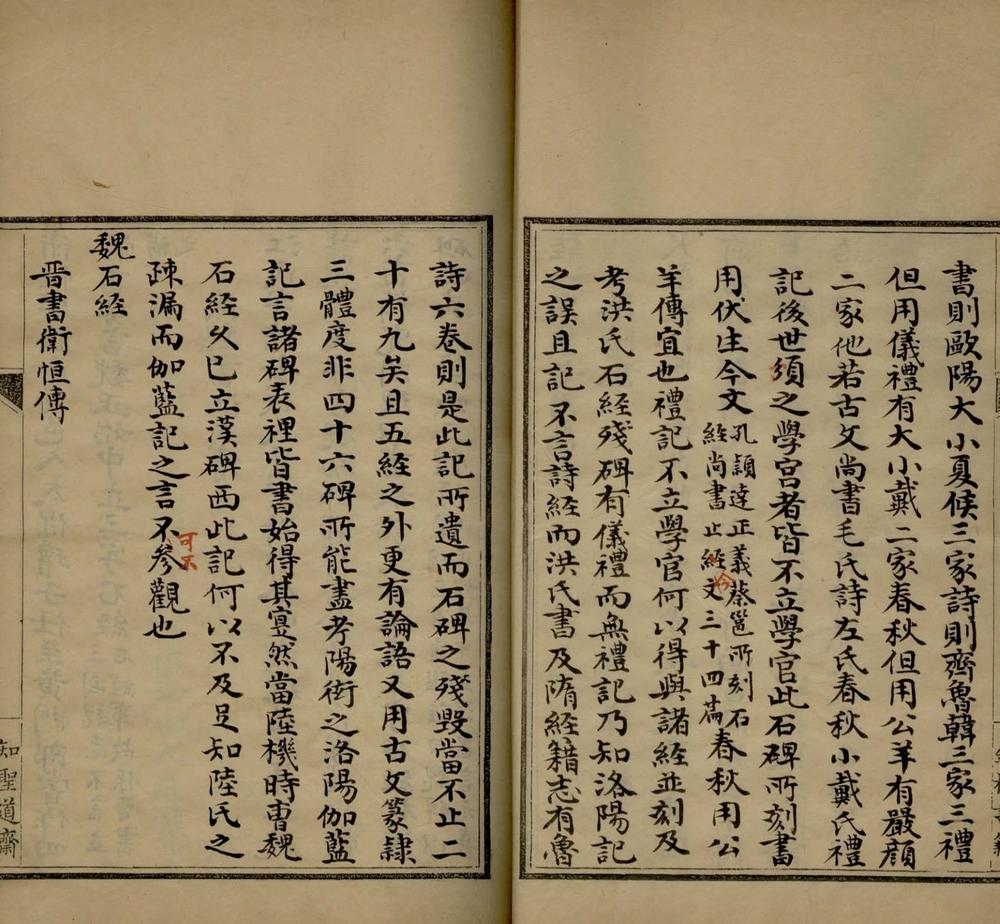 書則歐陽大小夏侯三家詩則齊魯韓三家三禮
但用儀禮有大小戴二家春秋但用公羊有嚴顏
二家他若古文尚書毛氏詩左氏春秋小戴氏禮
記後世須之學宮者皆不立學官此石碑所刻書
用伏生今文孔穎達正義蔡邕所刻石經尚書止經文三十四篇春秋用公
今
羊傳宜也禮記不立學官何以得與諸經並刻及
考洪氏石經殘碑有儀禮而無禮記乃知洛陽記
之誤且記不言詩經而洪氏書及隋經籍志有魯
詩六卷則是此記所遺而石碑之殘毀當不止二
十有九矣且五經之外更有論語又用古文篆隷
三體度非四十六碑所能盡考陽衒之洛陽伽藍
記言諸碑表裡皆書始得其寔然當陸機時曹魏
石經久已立漢碑西此記何以不及足知陸氏之
疎漏而伽藍記之言不參觀也
可不
魏石經
晋書衛恒傳
知聖道齋